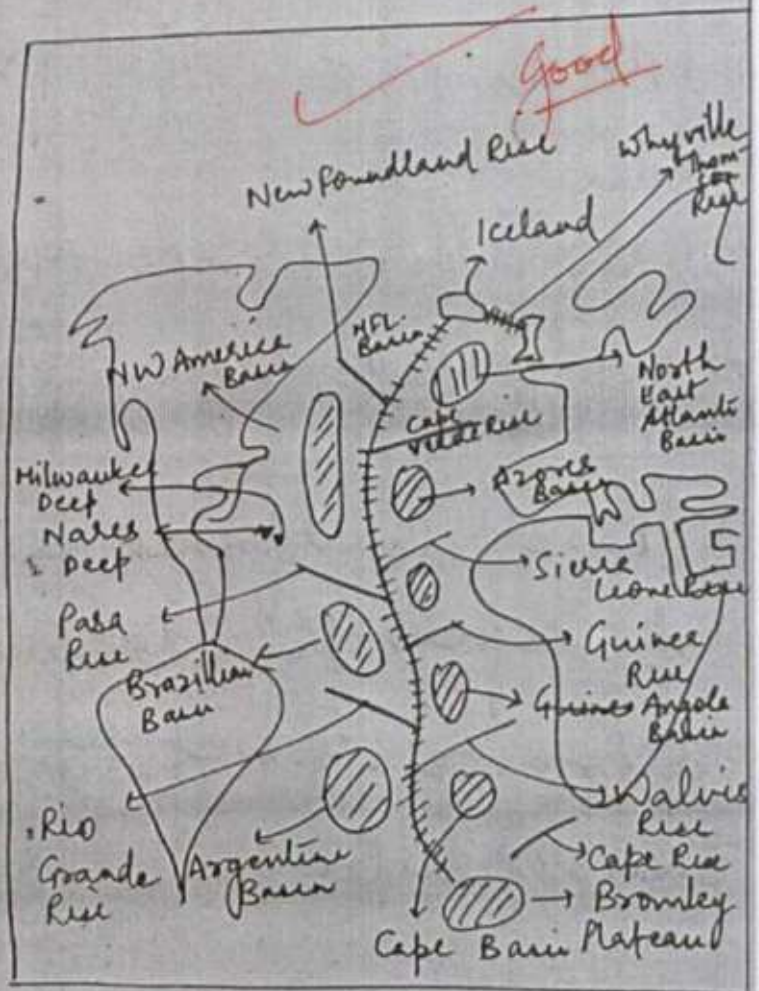 Good
Newfoundland Rise
Whyville
Thom-
son
Rise
Iceland
NW America
Basin
NFL.
Basin
North
East
Atlantic
Basin
Cape
Verde Rise
Milwaukee
Deep
Azores
Basin
Nares
Deep
Sierra
Leone Rise
Para
Rise
Guinea
Rise
Brazilian
Basin
Guinea Angola
Basin
Walvis
Rise
Rio
Grande
Rise
Argentine
Basin
Cape Rise
Bromley
Plateau
Cape Basin